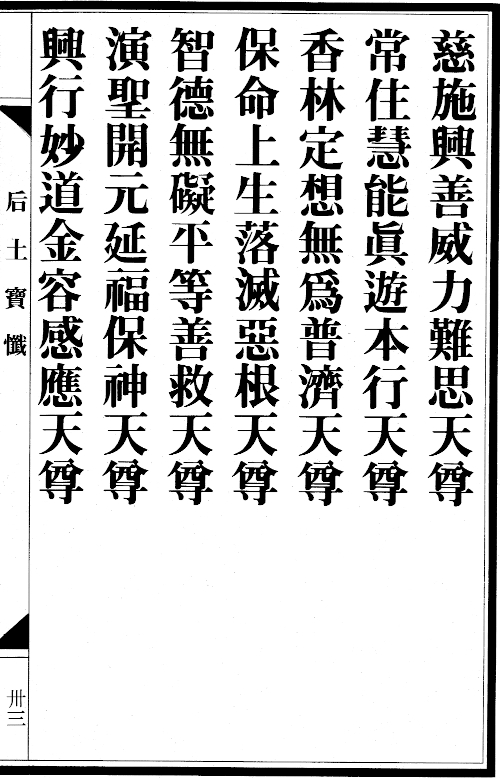 慈施興善威力難思天尊
常住慧能眞遊本行天尊
香林定想無爲普濟天尊
保命上生落滅惡根天尊
智德無礙平等善救天尊
演聖開元延福保神天尊
興行妙道金容感應天尊
后土寶懺
卅三